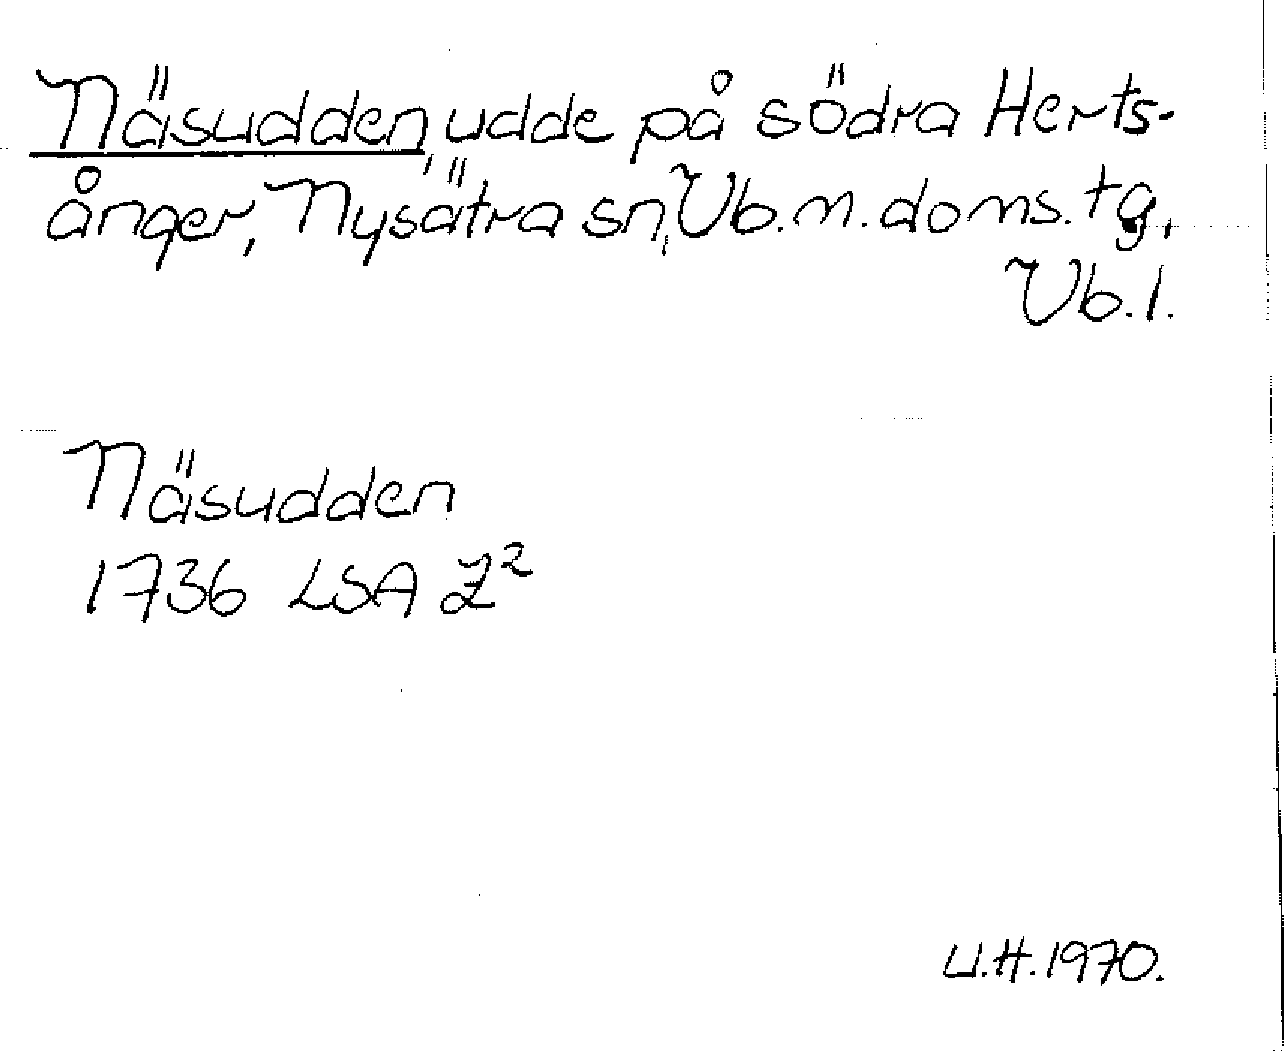 Näsudden, udde på södra Herts-
ånger, Nysätra sn, Vb.n.doms.tg,
Vb.l.
Näsudden
1736 LSA Z²
U.H.1970.